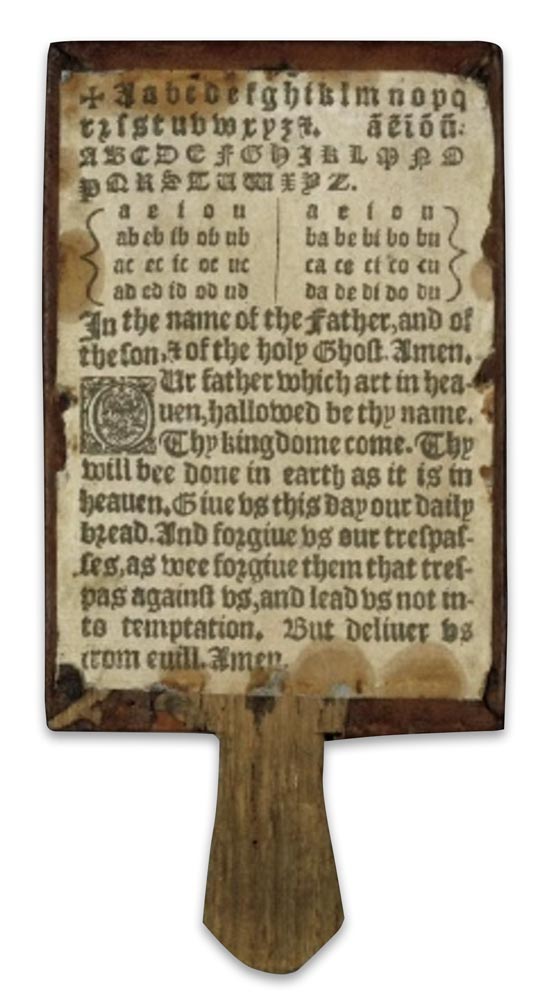 ✠ Aabcdefghiklmnopq
rꝛſstuvwxyzꝛ. ãẽĩõũ:
ABCDEFGHIKLMNO
PQRSTUWXYZ.
a e i o u a e i o u
ab eb ib ob ub ba be bi bo bu
ac ec ic oc uc ca ce ci co cu
ad ed id od ud da de di do du
In the name of the Father, and of
the ſon, ⁊ of the holy Ghoſt. Amen.
OUr father which art in hea-
uen, hallowed be thy name.
Thy kingdome come. Thy
will bee done in earth as it is in
heauen. Giue vs this day our daily
bread. And forgiue vs our treſpaſ-
ſes, as wee forgiue them that treſ-
pas againſt vs, and lead vs not in-
to temptation. But deliuer vs
from euill. Amen.